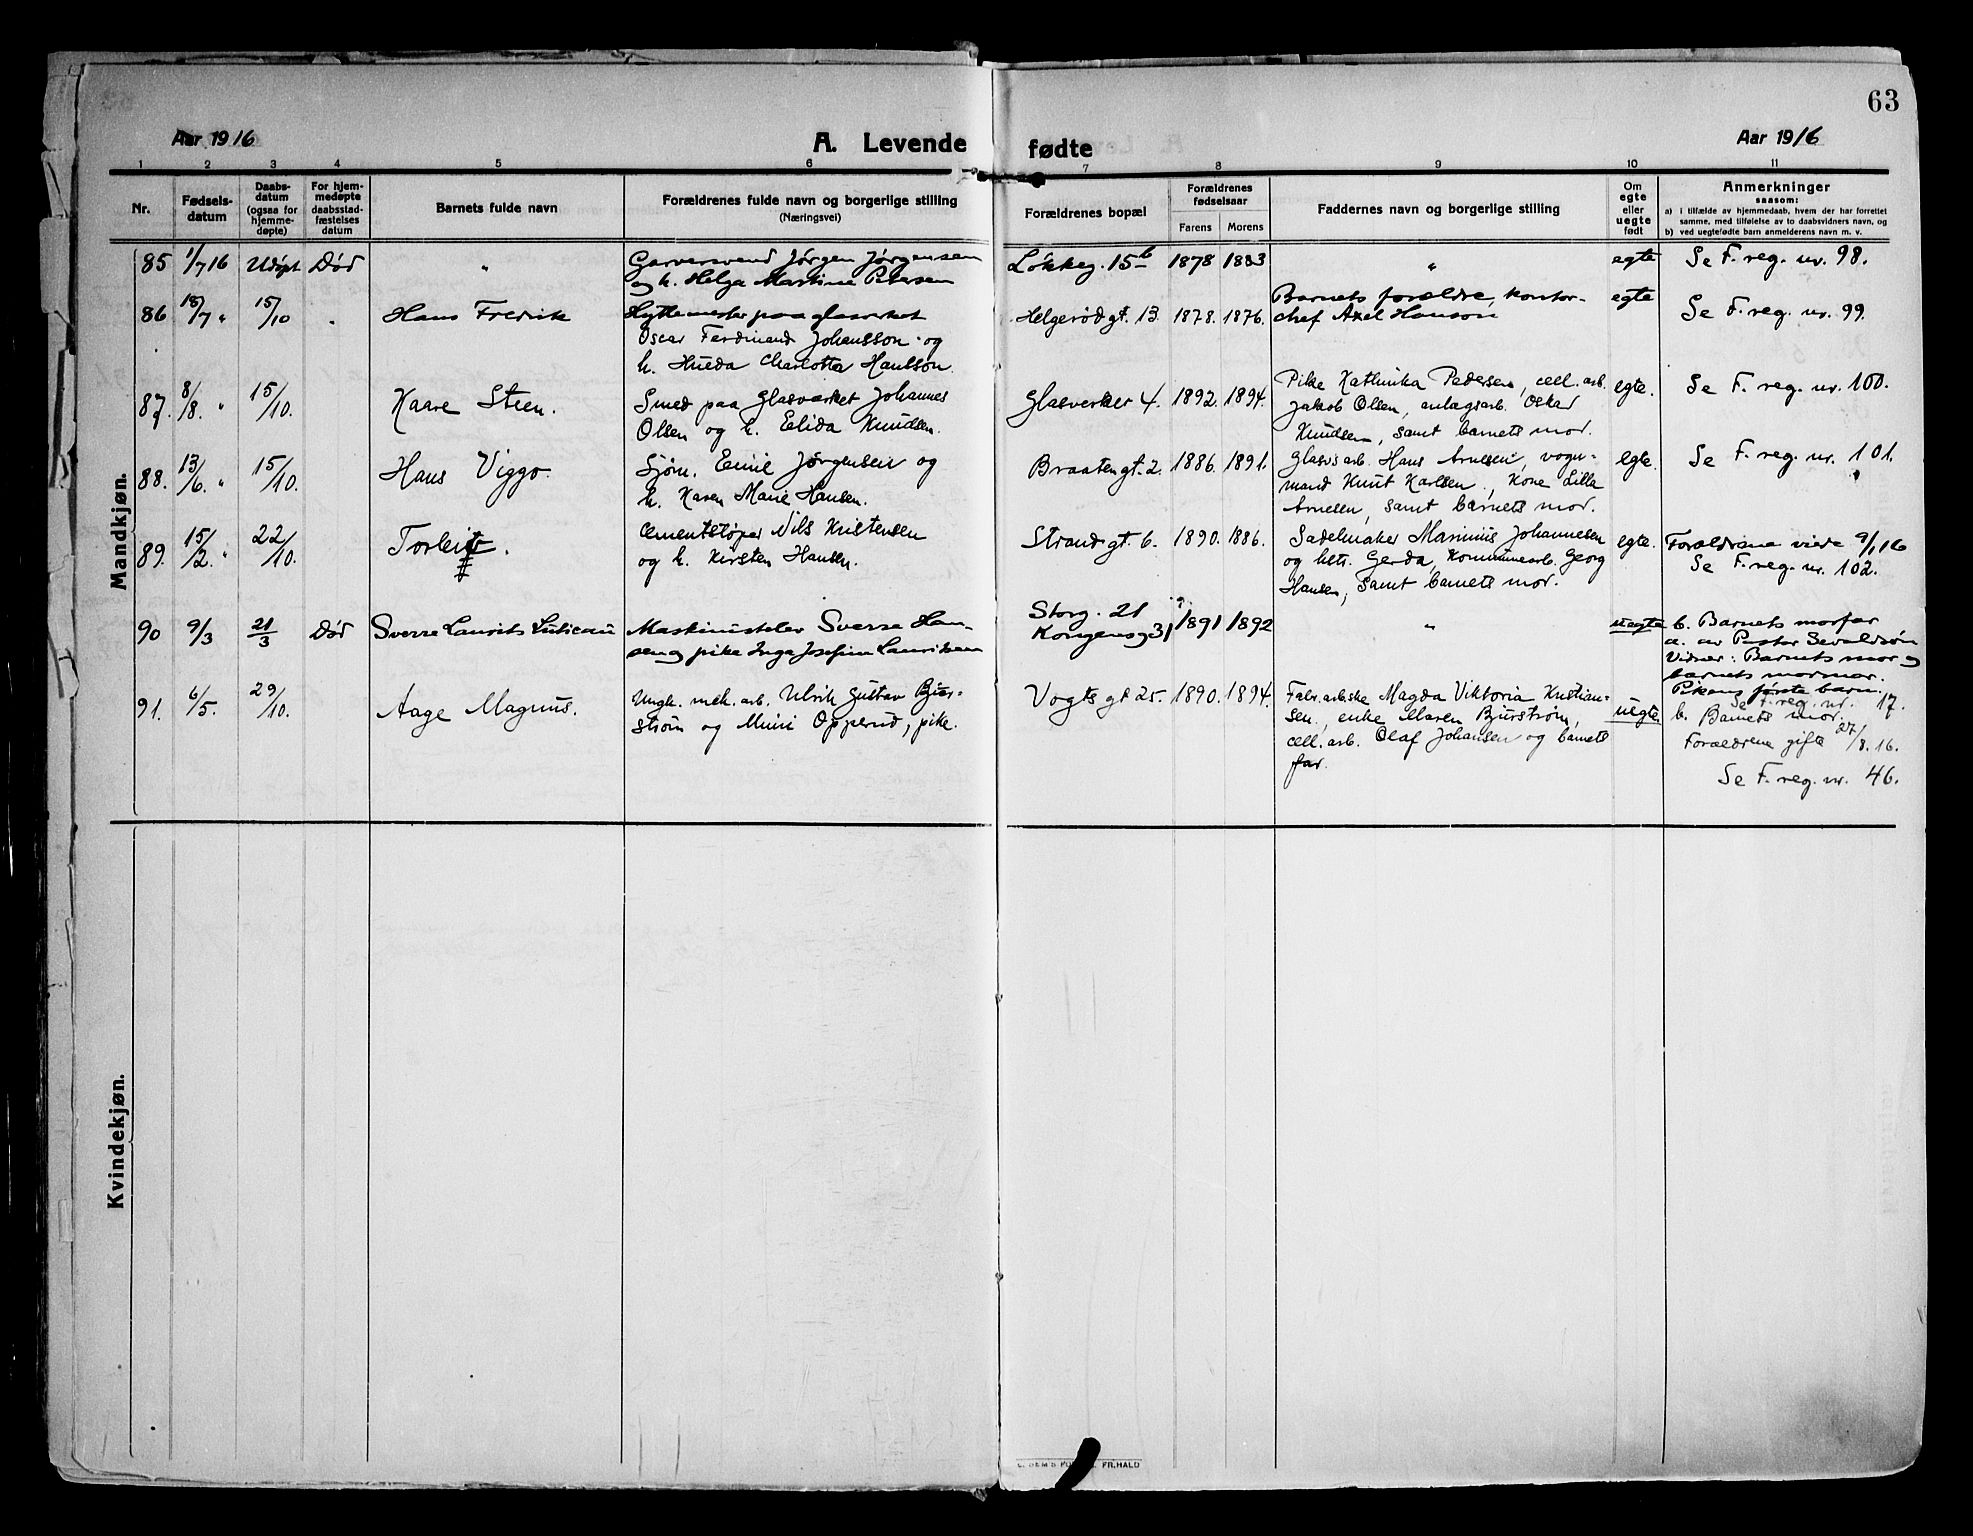 63
Aar 1916
A. Levende
fødte
Aar 1916
1 2 3 4 5 6 7 8 9 10 11
Nr.
Fødsels-
datum
Daabs-
datum
(ogsaa for
hjemme-
døpte)
For hjem-
medøpte
daabsstad-
fæstelses
datum
Barnets fulde navn
Forældrenes fulde navn og borgerlige stilling
(Næringsvei)
Forældrenes bopæl
Forældrenes
fødselsaar
Farens Morens
Faddernes navn og borgerlige stilling
Om
egte
eller
uegte
født
Anmerkninger
saasom:
a) i tilfælde av hjemmedaab, hvem der har forrettet
samme, med tilføielse av to daabsvidners navn, og
b) ved uegtefødte barn anmelderens navn m. v.
Mandkjøn.
85 1/7 16 Udøpt Død "
Garversvend Jørgen Jørgensen
og h. Helga Martine Petersen
Løkkeg. 15b 1878 1883 " egte Se F. reg. nr. 98.
86 18/7 " 15/10 Hans Fredrik
Hyttemester paa glasverket
Oscar Ferdinand Johansson og
h. Hulda Charlotta Hansson.
Helgerødgt. 13 1878. 1876.
Barnets forældre, kontor-
chef Axel Hanson
egte Se F. reg. nr. 99.
87 8/8 " 15/10. Kaare Steen.
Smed paa Glasværket Johannes
Olsen og h. Elida Knudsen.
Glasverket 4. 1892. 1894.
Pike Kathinka Pedersen, cell. arb.
Jakob Olsen, anlægsarb. Oskar
Knudsen, samt barnets mor.
egte. Se F. reg. nr. 100.
88. 13/6. " 15/10. Hans Viggo.
Sjøm. Emil Jørgensen og
h. Karen Marie Hansen.
Braatengt. 2. 1886. 1891.
Glasvsarb. Hans Arnesen, vogn-
mand Knut Karlsen, Kone Lilla
Arnesen, samt barnets mor.
egte. Se F. reg. nr. 101.
89. 15/2. " 22/10. Torleif.
Cementstøper Nils Kristensen
og h. Kirsten Hansen.
Strandgt. 6. 1890. 1886.
Sadelmaker Marinius Johannesen
og htr. Gerda, Kommunearb. Georg
Hansen, samt barnets mor.
egte. Forældrene viede 9/1 16
Se F. reg. nr. 102.
90 9/3 21/3 Død Sverre Laurits
Maskinistelev Sverre Han-
sen og pike Inga Josefine Lauritsen
Storg. 21
Kongensg 31 1891 1892 " uegte
b. Barnets morfar
a. av Pastor Sevaldsøn
Vidner: Barnets mor og
barnets mormor.
Pikens første barn.
Se F. reg. nr. 17.
91. 6/5. 29/10. Aage Magnus.
Ungk. mek. arb. Ulrik Gustav Bjur-
strøm og Mimi Opperud, pike.
Vogts gt 25. 1890. 1894.
Fabr. arbske Magda Viktoria Kristian-
sen, enke Maren Bjurstrøm,
cell. arb. Olaf Johansen og barnets
far.
uegte
b. Barnets mor.
Forældrene gifte 27/8. 16.
Se F. reg. nr. 46.
Kvindekjøn.
FR. HALD